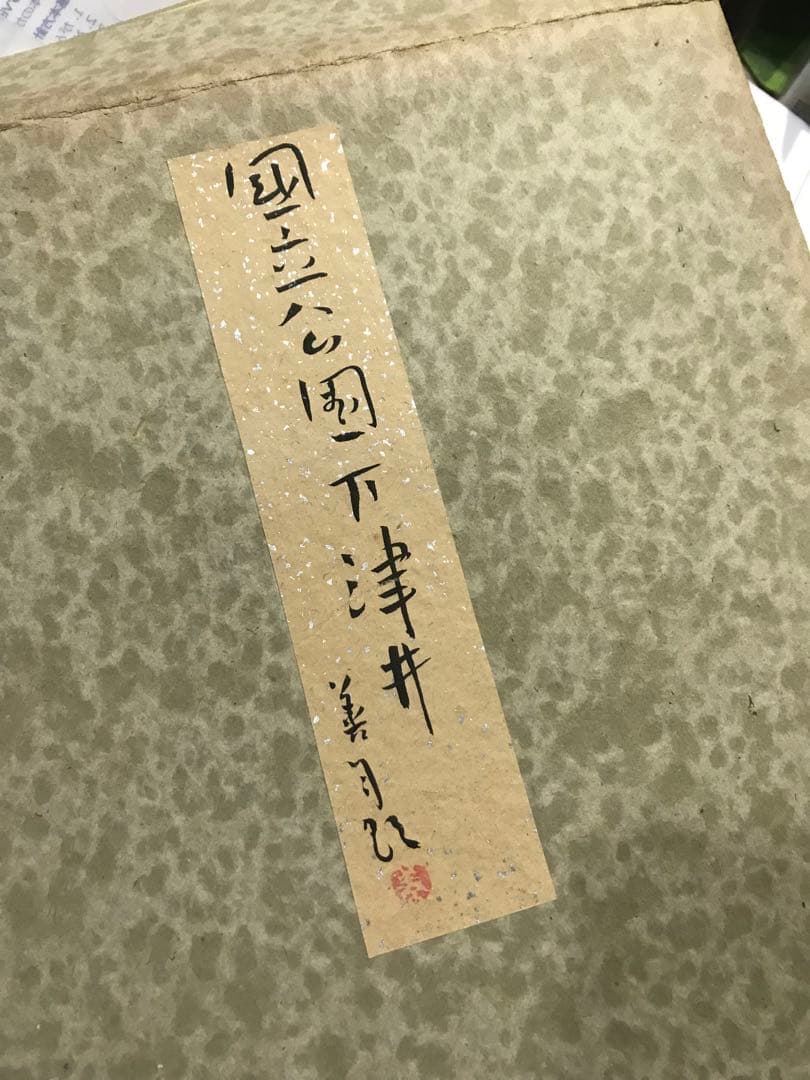 國立公園下津井
善月題